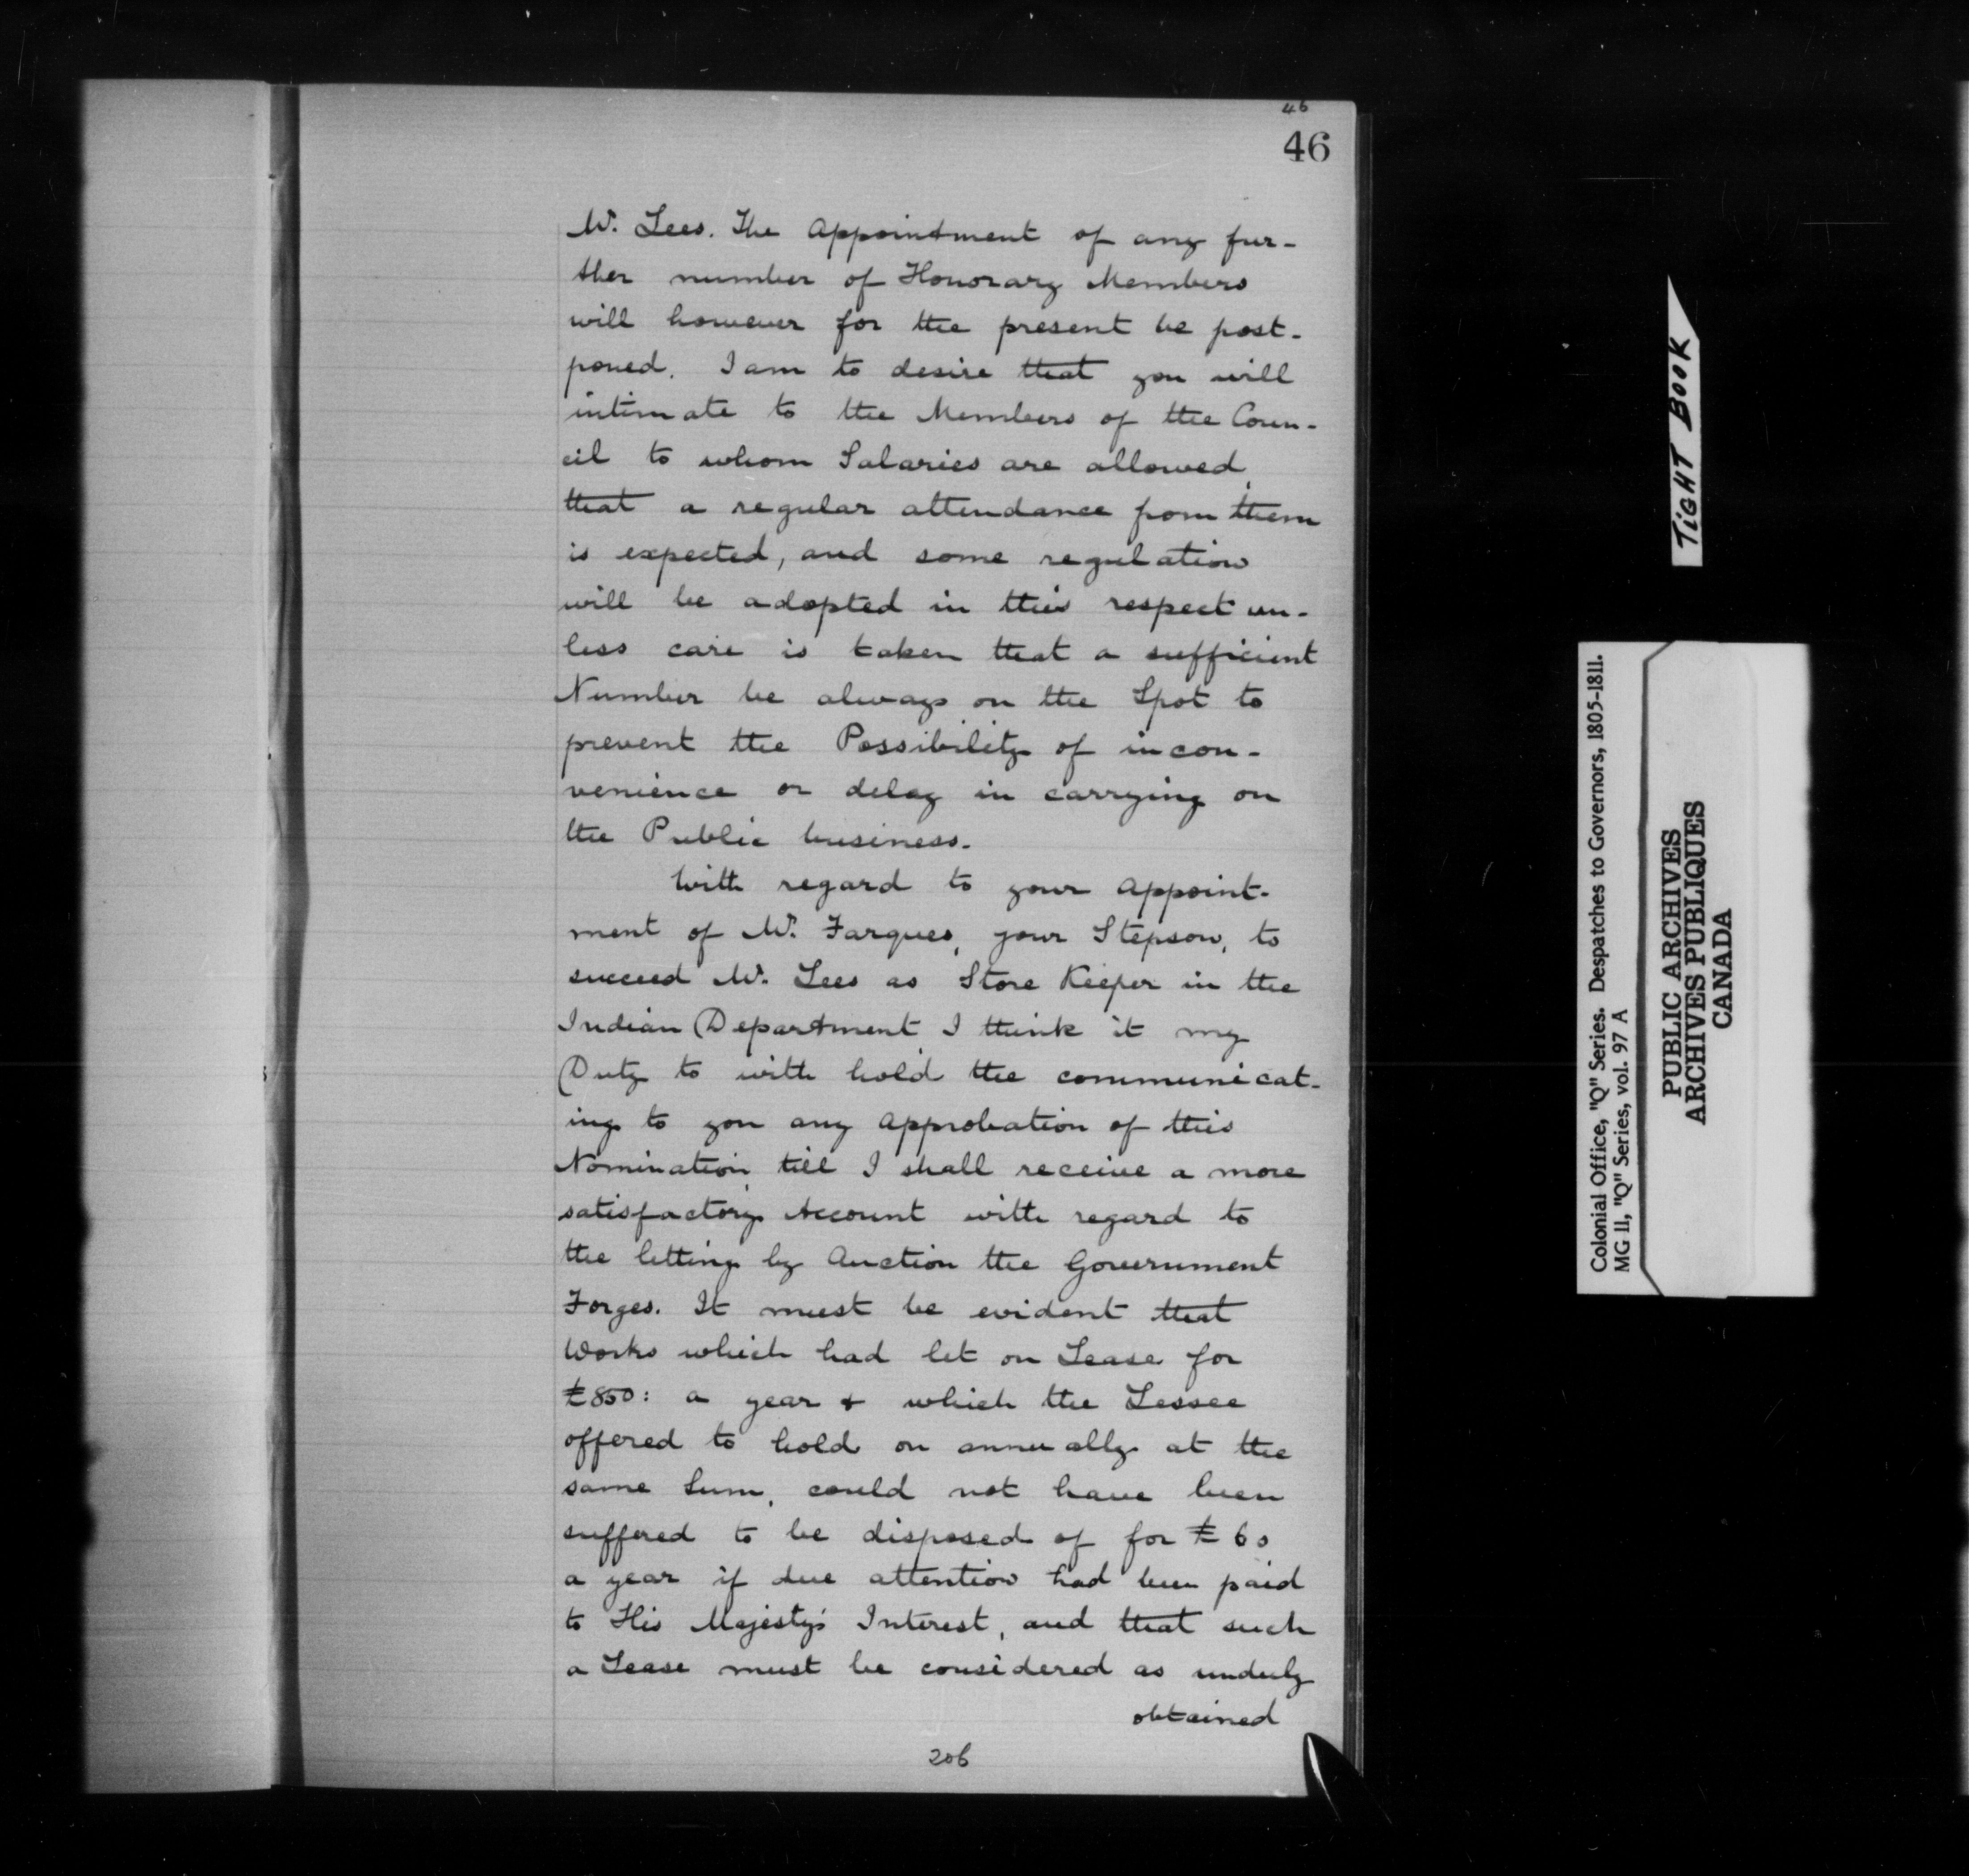 46
46
Mr. Lees. The Appointment of any fur-
ther number of Honorary Members
will however for the present be post-
poned. I am to desire that you will
intimate to the Members of the Coun-
cil to whom Salaries are allowed,
that a regular attendance from them
is expected, and some regulation
will be adopted in this respect un-
less care is taken that a sufficient
Number be always on the Spot to
prevent the Possibility of incon-
venience or delay in carrying on
the Public business.
With regard to your Appoint-
ment of Mr. Fargues, your Stepson, to
succeed Mr. Lees as Store Keeper in the
Indian Department, I think it my
Duty to with hold the communicat-
ing to you any Approbation of this
Nomination, till I shall receive a more
satisfactory Account with regard to
the letting by Auction the Government
Forges. It must be evident that
Works which had let on Lease for
£850: a year & which the Lessee
offered to hold on annually at the
same Sum, could not have been
suffered to be disposed of for £60
a year if due attention had been paid
to His Majesty's Interest, and that such
a Lease must be considered as unduly
obtained
206
TIGHT BOOK
Colonial Office, "Q" Series. Despatches to Governors, 1805-1811.
MG 11, "Q" Series, vol. 97 A
PUBLIC ARCHIVES
ARCHIVES PUBLIQUES
CANADA